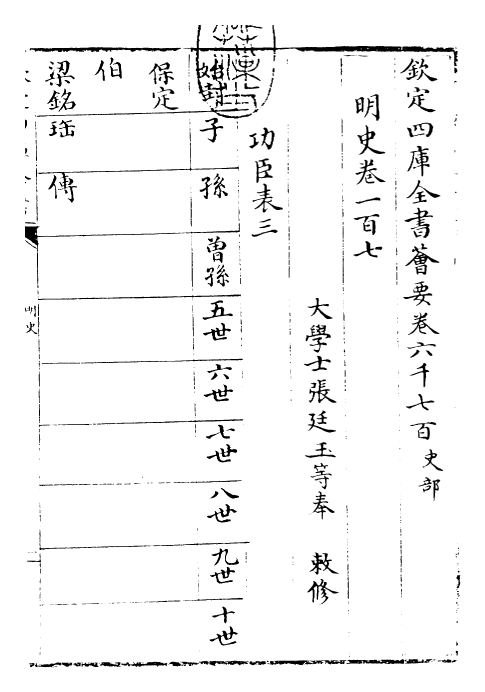 欽定四庫全書薈要卷六千七百史部
明史卷一百七
大學士張廷玉等奉 敕修
功臣表三
始封 子 孫 曽孫 五世 六世 七世 八世 九世 十世
保定
伯
梁銘 珤 傳
明史